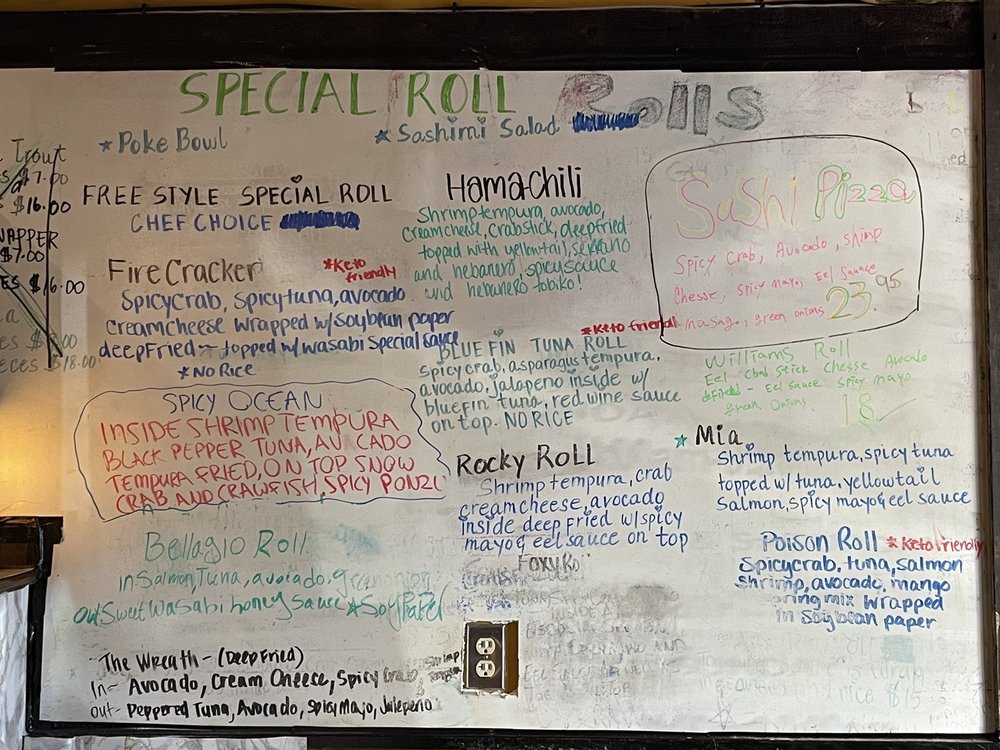 SPECIAL ROLL Rolls
* Poke Bowl
* Sashimi Salad
Trout
$7.00
$16.00
$7.00
$16.00
$18.00
FREE STYLE SPECIAL ROLL
CHEF CHOICE
FireCracker
*Keto
friendly
Spicycrab, Spicytuna, avocado
creamcheese wrapped w/soybean paper
deepFried - topped w/wasabi Special sauce
*No Rice
SPICY OCEAN
INSIDE SHRIMP TEMPURA
BLACK PEPPER TUNA, AVOCADO
TEMPURA FRIED, ON TOP SNOW
CRAB AND CRAWFISH, SPICY PONZU
Bellagio Roll
in Salmon, Tuna, avocado, greenonion
out Sweet wasabi honey sauce *Soy Paper
The Wreath - (DeepFried)
In - Avocado, Cream Cheese, Spicy Crab, Shrimp
out - Peppered Tuna, Avocado, Spicy Mayo, Jalepeno
HamaChili
Shrimp tempura, avocado,
creamcheese, crabstick, deepfried
topped with yellowtail, serrano
and hebanero, spicy sauce
and hebanero tobiko!
*Keto friendl
BLUE FIN TUNA ROLL
spicy crab, asparagus tempura,
avocado, jalapeno inside w/
bluefin tuna, red wine sauce
on top. NO RICE
Rocky Roll
Shrimp tempura, crab
creamcheese, avocado
inside deep fried w/spicy
mayo & eel sauce on top
Foxy Rol
Sushi Pizza
Spicy Crab, Avocado, Shimp
Chesse, Spicy mayo, Eel Sauace
masago, green onions 23.95
Williams Roll
Eel Crab Stick Chesse Avocado
deFried - Eel Sauce Spicy mayo
green Onions 18
* Mia
Shrimp tempura, spicy tuna
topped w/ tuna, yellowtail
Salmon, spicy mayo & eel sauce
Poison Roll *Keto friendly
Spicycrab, tuna, salmon
Shrimp, avocado, mango
spring mix wrapped
in soybean paper